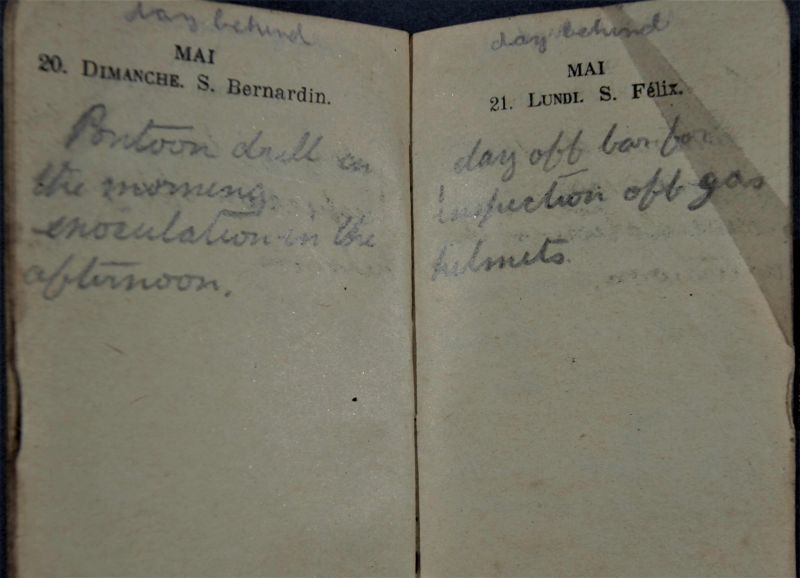 day behind
MAI
20. DIMANCHE. S. Bernardin.
Pontoon drill in
the morning
enoculation in the
afternoon.
day behind
MAI
21. LUNDI. S. Félix.
day off bar for
inspection off gas
helmets